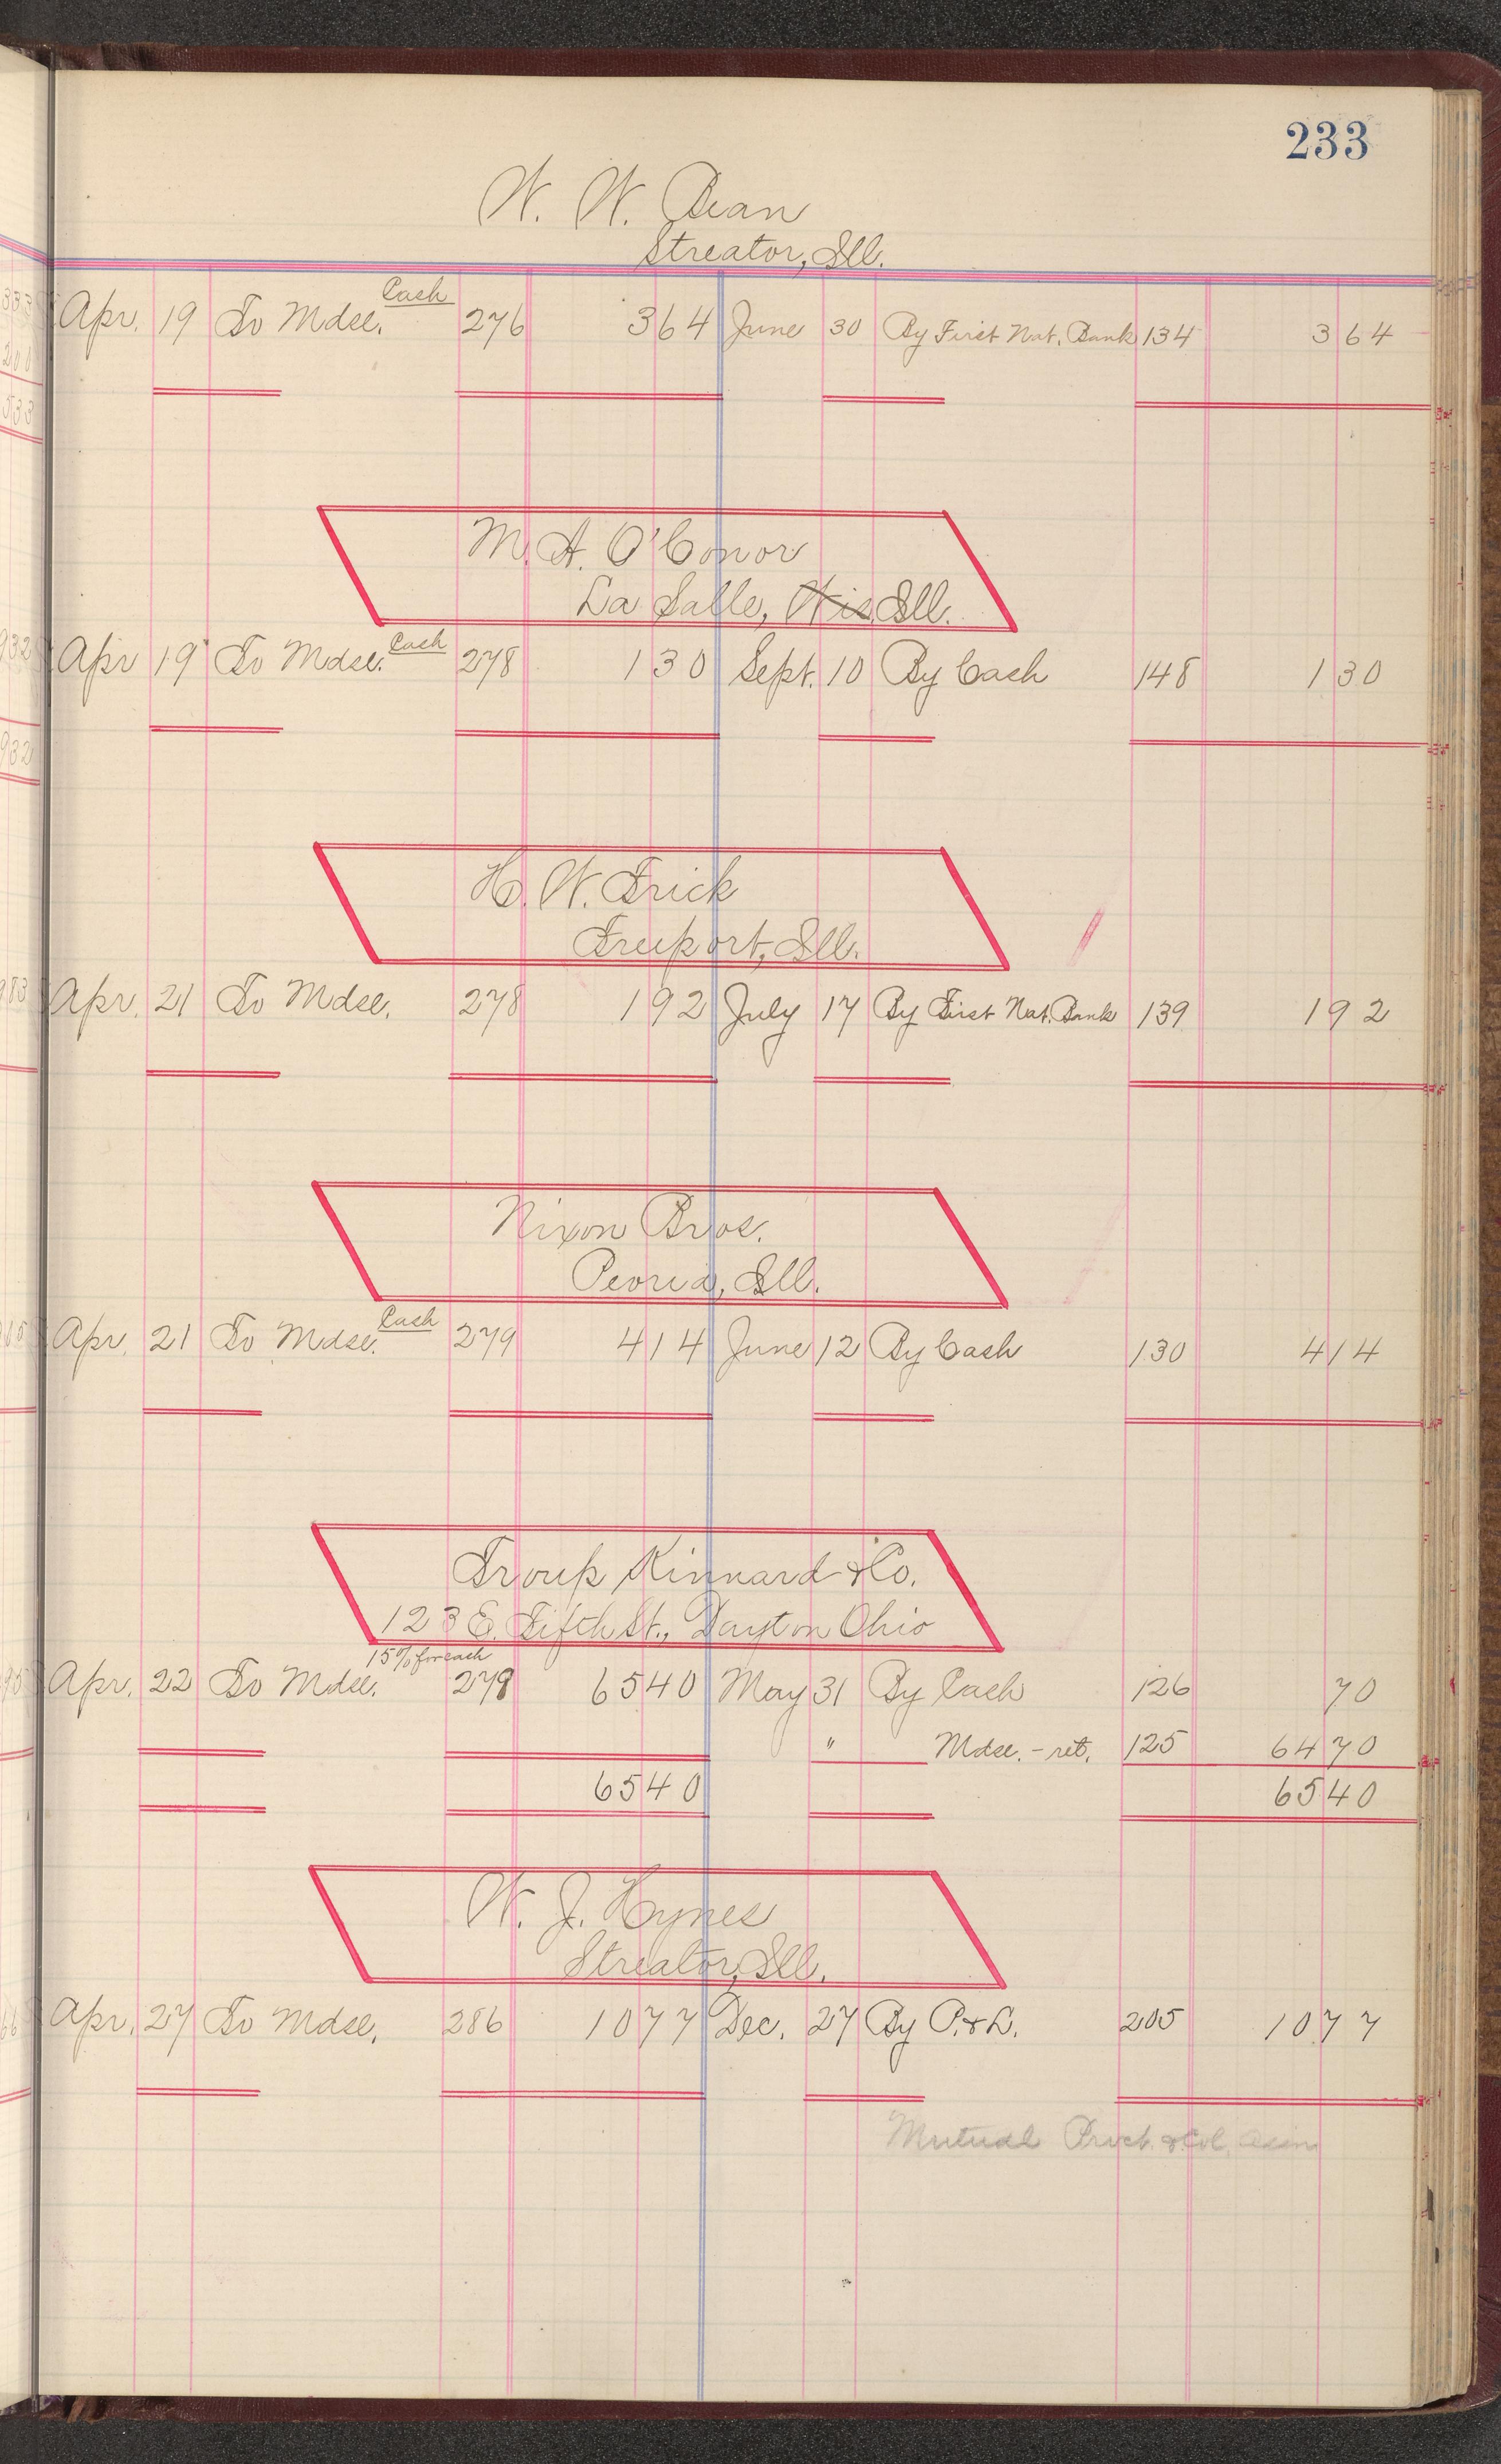 233
W. W. Bean
Streator, Ill.
Apr. 19 To Mdse. Cash 276 364 June 30 By First Nat. Bank 134 364
M. A. O'Conor
La Salle, Wis Ill.
Apr 19 To Mdse. Cash 278 130 Sept. 10 By Cash 148 130
H. W. Frick
Freeport, Ill.
Apr. 21 To Mdse. 278 192 July 17 By First Nat. Bank 139 192
Nixon Bros.
Peoria, Ill.
Apr. 21 To Mdse. Cash 279 414 June 12 By Cash 130 414
Troup Kinnard & Co.
123 E. Fifth St., Dayton Ohio
15% for cash
Apr. 22 To Mdse. 279 6540 May 31 By Cash 126 70
" Mdse. - ret. 125 6470
6540 6540
W. J. Hynes
Streator, Ill.
Apr. 27 To Mdse. 286 1077 Dec. 27 By P. & L. 205 1077
Mutual & Col.